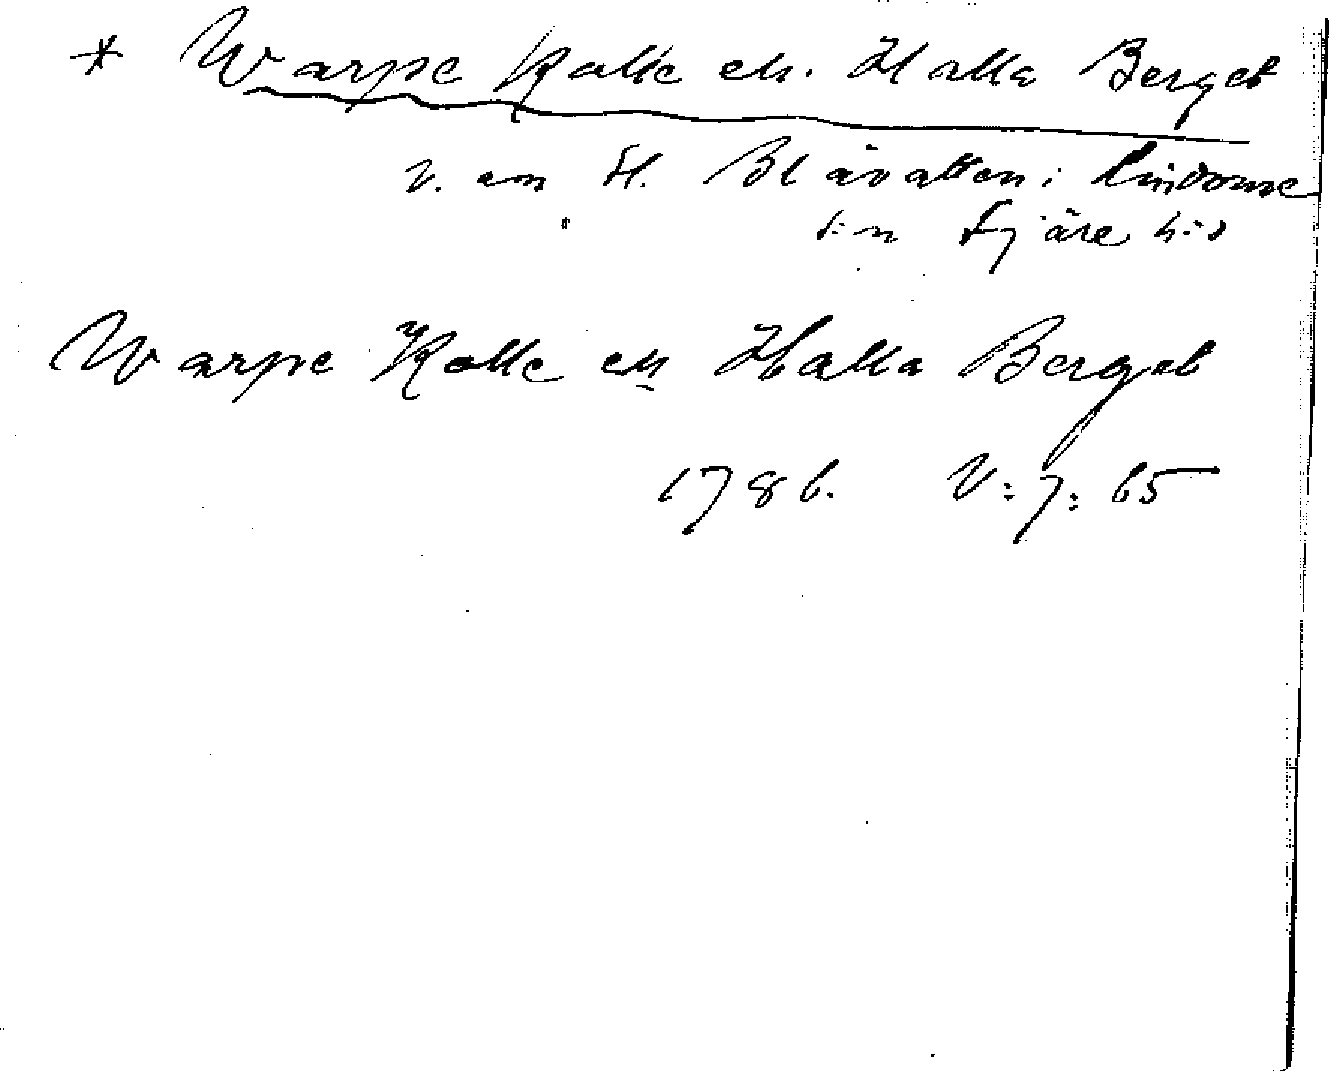 * Warpe Kolle ell. Halla Berget
v. om St. Blåvatten i Lindome
s:n Fjäre h:d
Warpe Kolle ell Halla Berget
1786. V:7:65